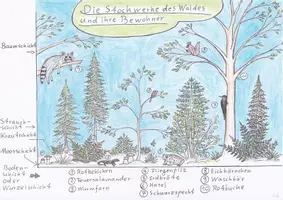 Die Stockwerke des Waldes
und ihre Bewohner
Baumschicht
Strauch-
schicht
Krautschicht
Moosschicht
Boden-
schicht
oder
Wurzelschicht
① Rotkehlchen
② Feuersalamander
③ Wurmfarn
④
⑤ Erdkröte
⑥ Hasel
⑦ Schwarzspecht
⑧ Eichhörnchen
⑨ Waschbär
⑩ Rotbuche